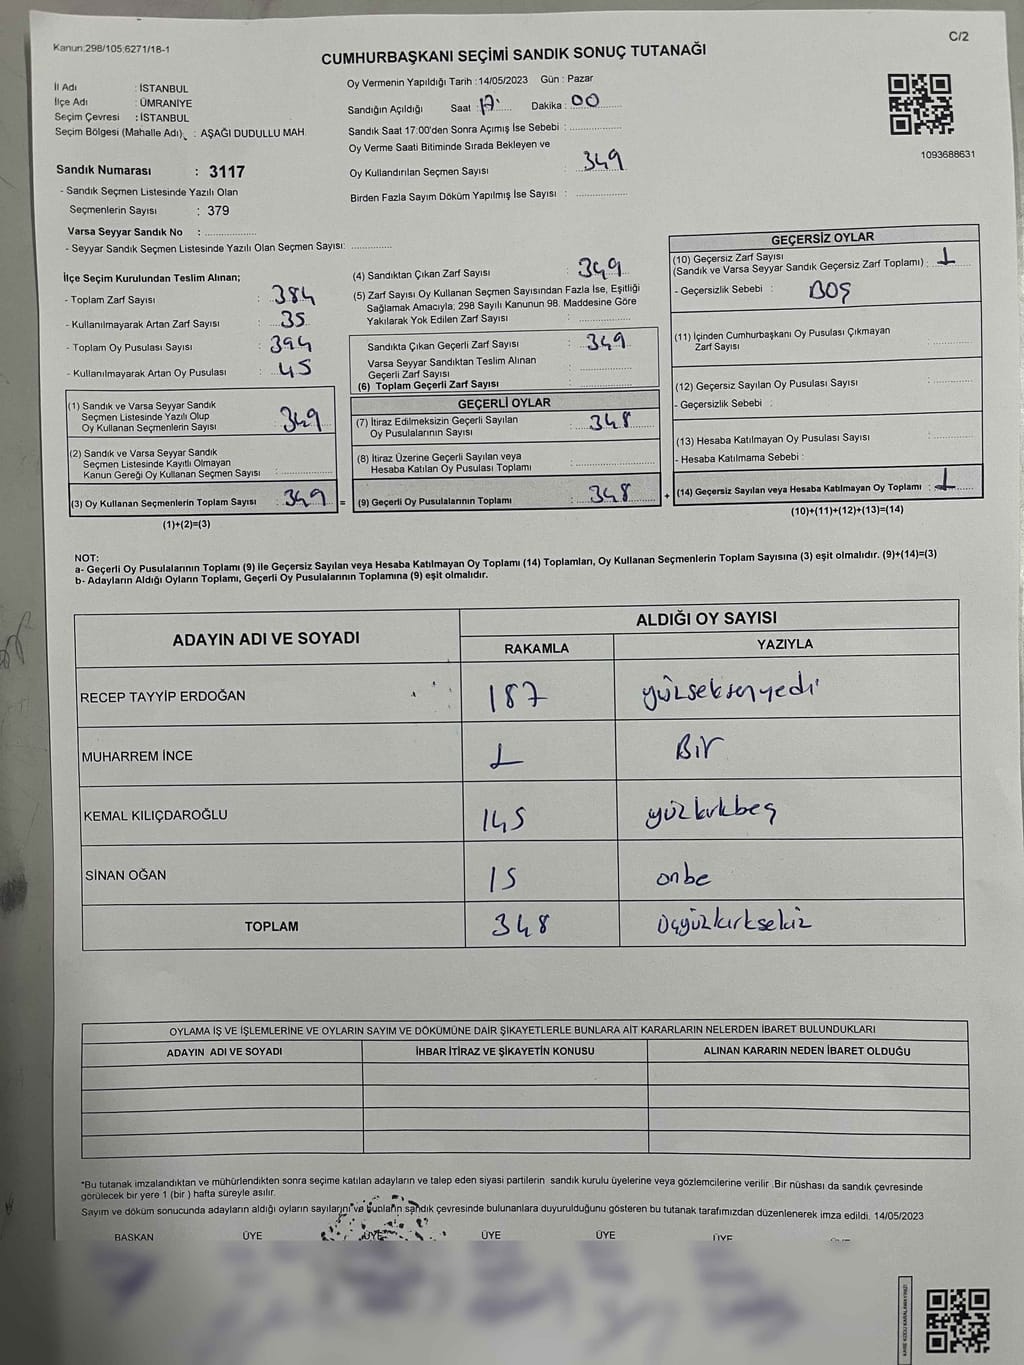 Kanun:298/105;6271/18-1
C/2
CUMHURBAŞKANI SEÇİMİ SANDIK SONUÇ TUTANAĞI
İl Adı : İSTANBUL
İlçe Adı : ÜMRANİYE
Seçim Çevresi : İSTANBUL
Seçim Bölgesi (Mahalle Adı) : AŞAĞI DUDULLU MAH.
Sandık Numarası : 3117
- Sandık Seçmen Listesinde Yazılı Olan
Seçmenlerin Sayısı : 379
Varsa Seyyar Sandık No : ................
- Seyyar Sandık Seçmen Listesinde Yazılı Olan Seçmen Sayısı: ............
Oy Vermenin Yapıldığı Tarih :14/05/2023 Gün : Pazar
Sandığın Açıldığı Saat : 17 Dakika : 00
Sandık Saat 17:00'den Sonra Açımış İse Sebebi : ................
Oy Verme Saati Bitiminde Sırada Bekleyen ve
Oy Kullandırılan Seçmen Sayısı : 349
Birden Fazla Sayım Döküm Yapılmış İse Sayısı : ................
1093688631
İlçe Seçim Kurulundan Teslim Alınan;
- Toplam Zarf Sayısı : 384
- Kullanılmayarak Artan Zarf Sayısı : 35
- Toplam Oy Pusulası Sayısı : 394
- Kullanılmayarak Artan Oy Pusulası : 45
(1) Sandık ve Varsa Seyyar Sandık
Seçmen Listesinde Yazılı Olup
Oy Kullanan Seçmenlerin Sayısı : 349
(2) Sandık ve Varsa Seyyar Sandık
Seçmen Listesinde Kayıtlı Olmayan
Kanun Gereği Oy Kullanan Seçmen Sayısı : ................
(3) Oy Kullanan Seçmenlerin Toplam Sayısı : 349 =
(1)+(2)=(3)
(4) Sandıktan Çıkan Zarf Sayısı : 349
(5) Zarf Sayısı Oy Kullanan Seçmen Sayısından Fazla İse, Eşitliği
Sağlamak Amacıyla; 298 Sayılı Kanunun 98. Maddesine Göre
Yakılarak Yok Edilen Zarf Sayısı : ................
Sandıkta Çıkan Geçerli Zarf Sayısı : 349
Varsa Seyyar Sandıktan Teslim Alınan
Geçerli Zarf Sayısı : ................
(6) Toplam Geçerli Zarf Sayısı : ................
GEÇERLİ OYLAR
(7) İtiraz Edilmeksizin Geçerli Sayılan
Oy Pusulalarının Sayısı : 348
(8) İtiraz Üzerine Geçerli Sayılan veya
Hesaba Katılan Oy Pusulası Toplamı : ................
(9) Geçerli Oy Pusulalarının Toplamı : 348 +
GEÇERSİZ OYLAR
(10) Geçersiz Zarf Sayısı
(Sandık ve Varsa Seyyar Sandık Geçersiz Zarf Toplamı) : 1
- Geçersizlik Sebebi : BOŞ
(11) İçinden Cumhurbaşkanı Oy Pusulası Çıkmayan
Zarf Sayısı : ................
(12) Geçersiz Sayılan Oy Pusulası Sayısı : ................
- Geçersizlik Sebebi :
(13) Hesaba Katılmayan Oy Pusulası Sayısı : ................
- Hesaba Katılmama Sebebi :
(14) Geçersiz Sayılan veya Hesaba Katılmayan Oy Toplamı : 1
(10)+(11)+(12)+(13)=(14)
NOT:
a- Geçerli Oy Pusulalarının Toplamı (9) ile Geçersiz Sayılan veya Hesaba Katılmayan Oy Toplamı (14) Toplamları, Oy Kullanan Seçmenlerin Toplam Sayısına (3) eşit olmalıdır. (9)+(14)=(3)
b- Adayların Aldığı Oyların Toplamı, Geçerli Oy Pusulalarının Toplamına (9) eşit olmalıdır.
ADAYIN ADI VE SOYADI
ALDIĞI OY SAYISI
RAKAMLA YAZIYLA
RECEP TAYYİP ERDOĞAN 187 yüzseksenyedi
MUHARREM İNCE 1 Bir
KEMAL KILIÇDAROĞLU 145 yüzkırkbeş
SİNAN OĞAN 15 onbe
TOPLAM 348 üçyüzkırksekiz
OYLAMA İŞ VE İŞLEMLERİNE VE OYLARIN SAYIM VE DÖKÜMÜNE DAİR ŞİKAYETLERLE BUNLARA AİT KARARLARIN NELERDEN İBARET BULUNDUKLARI
ADAYIN ADI VE SOYADI İHBAR İTİRAZ VE ŞİKAYETİN KONUSU ALINAN KARARIN NEDEN İBARET OLDUĞU
*Bu tutanak imzalandıktan ve mühürlendikten sonra seçime katılan adayların ve talep eden siyasi partilerin sandık kurulu üyelerine veya gözlemcilerine verilir .Bir nüshası da sandık çevresinde
görülecek bir yere 1 (bir ) hafta süreyle asılır.
Sayım ve döküm sonucunda adayların aldığı oyların sayılarını ve bunların sandık çevresinde bulunanlara duyurulduğunu gösteren bu tutanak tarafımızdan düzenlenerek imza edildi. 14/05/2023
BAŞKAN ÜYE ÜYE ÜYE ÜYE ÜYE